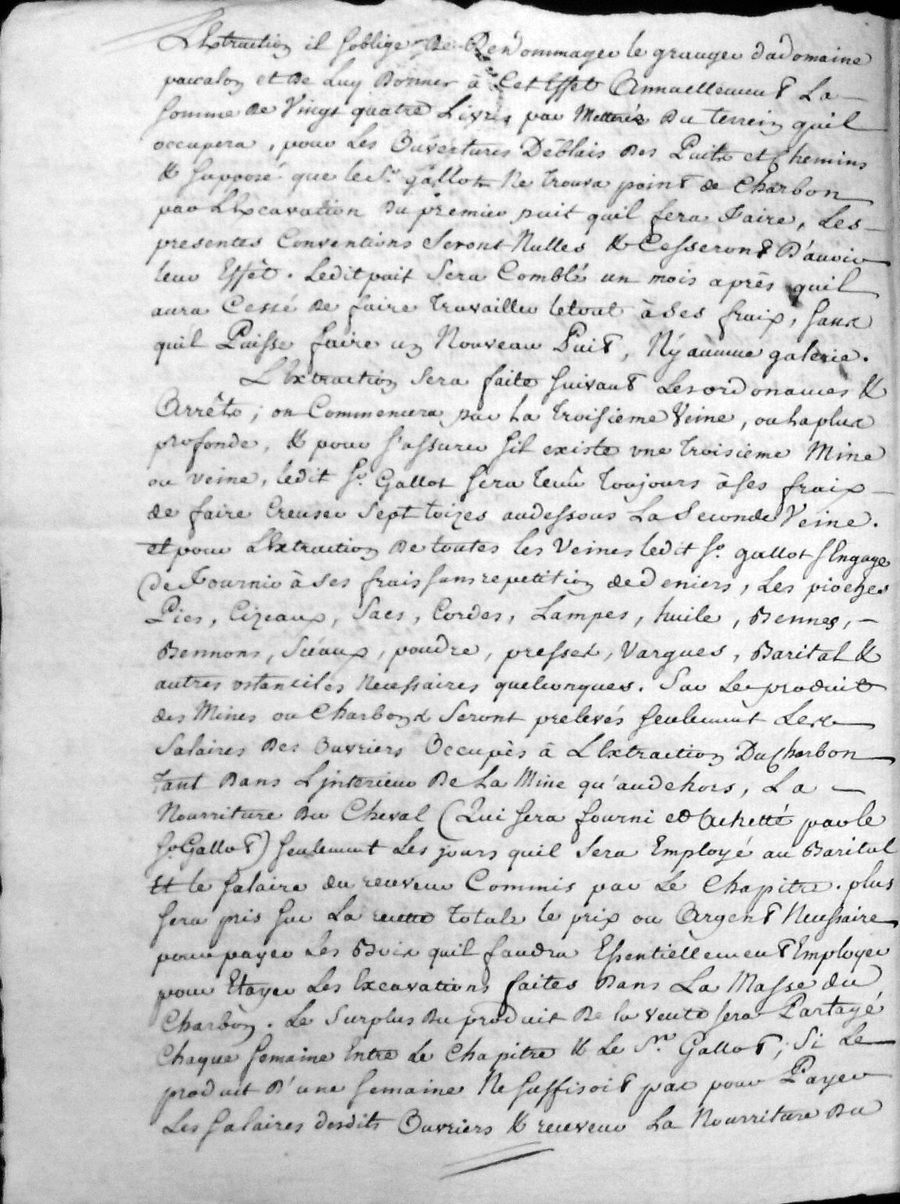 L'Extraction il s'oblige de Dedommager le granger dudomaine
pascalon et de Luy Donner à Cet Effet Annuellement La
somme de Vingt quatre Livres par Metterée Du terrein qu'il
occupera, pour Les Ouvertures Déblais des Puits et Chemins
& suposé que le Sr. Gallot Ne trouva point de Charbon
par L'Excavation du premier puit quil fera Faire, Les
presentes Conventions Seront Nulles & Cesseront D'avoir
leur Effêt. Ledit puit Sera Comblé un mois aprês quil
aura Cessé de faire travailler letout à Ses fraix, sans
quil Puisse faire un Nouveau Puit, Ny aucune galerie.
L'Extraction Sera faite suivant Les ordonances &
Arrêts; on Commencera par La troisieme Veine, ou la plus
profonde, & pour s'assurer s'il existe une troisieme Mine
ou veine, ledit Sr. Gallot Sera tenu toujours à Ses fraix
de faire Creuser Sept toizes audessous La Seconde Veine.
et pour L'Extraction de toutes les Veines ledit Sr. gallot s'Engage
de Fournir à Ses frais sans repetition dedeniers, Les pioches
Pics, Cizeaux, Sacs, Cordes, Lampes, huile, Bennes,
Bennons, Sçéaux, poudre, presses, Vargues, Barital &
autres ostanciles Necessaires quelconques. Sur Le produit
des Mines ou Charbons Seront prelevés seulement Les
Salaires des Ouvriers Occupès à L'Extraction Du Charbon
tant Dans L'jnterieur De La Mine qu'audehors, La
Nourriture Du Cheval (Qui sera fourni et Achetté par le
Sr. Gallot) seulement Les jours quil Sera Employé au Barital
Et le salaire du receveur Commis par Le Chapitre. plus
sera pris sur La recette totale le prix ou Argent Necessaire
pour payer Les Bois quil faudra Essentiellement Employer
pour Etayer Les Excavations faites Dans La Masse du
Charbon. Le Surplus Du produit De la vente sera Partagé
Chaque semaine Entre Le Chapitre & Le Sr. Gallot; Si Le
produit d'une semaine Ne suffisoit pas pour Payer
Les salaires desdits Ouvriers & receveur La Nourriture Du